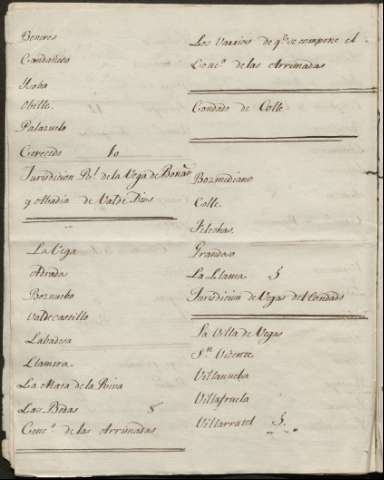 Beneros
Candañeda
Ysoba
Oville
Palazuelo
Cerecedo 10
Jurisdicion Rl. de la Vega de Boñar
y Abadia de Valde Dios
La Vega
Adrada
Boznuebo
Valdecastillo
Labadesa
Llamera
La Mata de la Riva
Las Bodas 8
Conco. de las Arrimadas
Los Varrios de qe. se compone el
Conco. de las Arrimadas
Condado de Colle
Bozmediano
Colle
Felechas
Grandoso
La Llama 5
Jurisdicion de Vegas del Condado
La Villa de Vegas
Sn. Vicente
Villanueba
Villafruela
Villarratel 5.